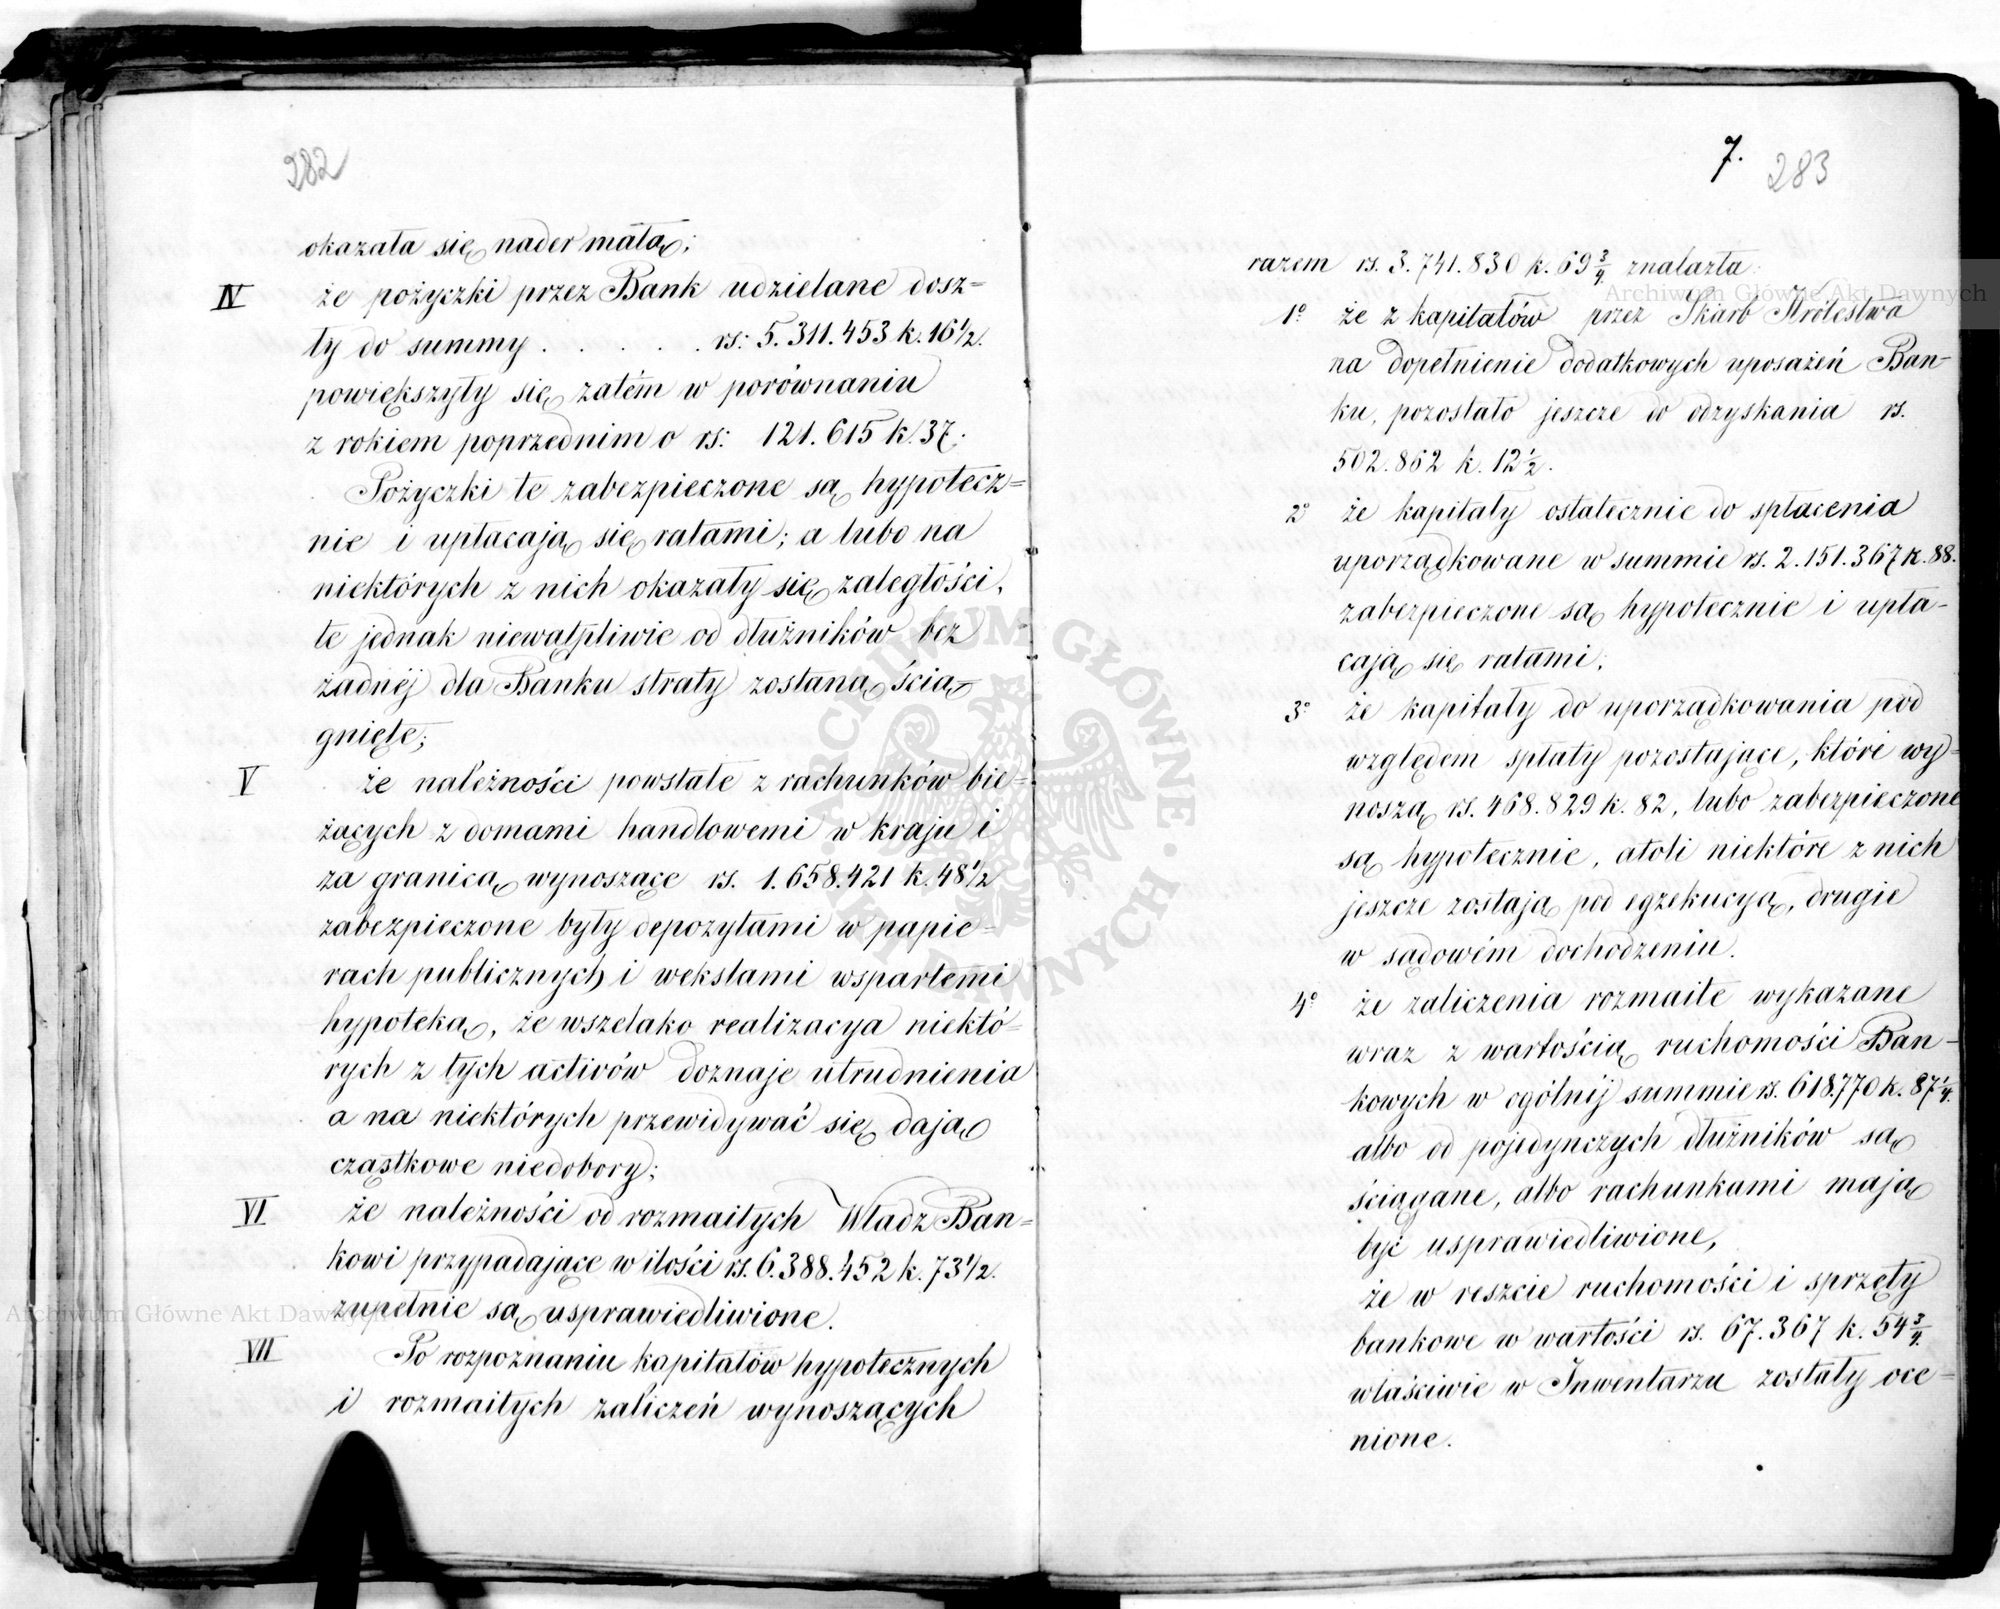 282
okazała się nader małą;
IV że pożyczki przez Bank udzielane dosz=
ły do summy . . . . . rs: 5.311.453 k. 16 1/2.
powiększyły się zatém w porównaniu
z rokiem poprzednim o rs: 121.615 k. 37;
Pożyczki te zabezpieczone są hypotecz=
nie i upłacają się ratami; a lubo na
niektórych z nich okazały się zaległości,
te jednak niewątpliwie od dłużników bez
żadnéj dla Banku straty zostaną ścią-
gnięte;
V że należności powstałe z rachunków bie=
żących z domami handlowemi w kraju i
za granicą wynoszące rs. 1.658.421 k. 48 1/2
zabezpieczone były depozytami w papie-
rach publicznych i wekslami wspartemi
hypoteką, że wszelako realizacya niektó-
rych z tych activów doznaje utrudnienia
a na niektórych przewidywać się dają
cząstkowe niedobory;
VI że należności od rozmaitych Władz Ban=
kowi przypadające w ilości rs. 6.388.452 k. 73 1/2.
zupełnie są usprawiedliwione.
VII Po rozpoznaniu kapitałów hypotecznych
i rozmaitych zaliczeń wynoszących
7. 283
razem rs. 3.741.830 k. 69 3/4 znalazła:
1º że z kapitałów przez Skarb Królestwa
na dopełnienie dodatkowych uposażeń Ban-
ku, pozostało jeszcze do odzyskania rs.
502.862 k. 12 1/2.
2º że kapitały ostatecznie do spłacenia
uporządkowane w summie rs. 2.151.367 k. 88.
zabezpieczone są hypotecznie i upła-
cają się ratami;
3º że kapitały do uporządkowania pod
względem spłaty pozostające, które wy-
noszą rs. 468.829 k. 82, lubo zabezpieczone
są hypotecznie, atoli niektóre z nich
jeszcze zostają pod egzekucyą, drugie
w sądowém dochodzeniu.
4º że zaliczenia rozmaite wykazane
wraz z wartością ruchomości Ban-
kowych w ogólnéj summie rs. 618.770 k. 87 1/4.
albo od pojedynczych dłużników są
ściągane, albo rachunkami mają
być usprawiedliwione,
że w reszcie ruchomości i sprzęty
bankowe w wartości rs. 67.367 k. 54 3/4.
właściwie w Inwentarzu zostały oce-
nione.
Archiwum Główne Akt Dawnych
Archiwum Główne Akt Dawnych
ARCHIWUM GŁÓWNE AKT DAWNYCH